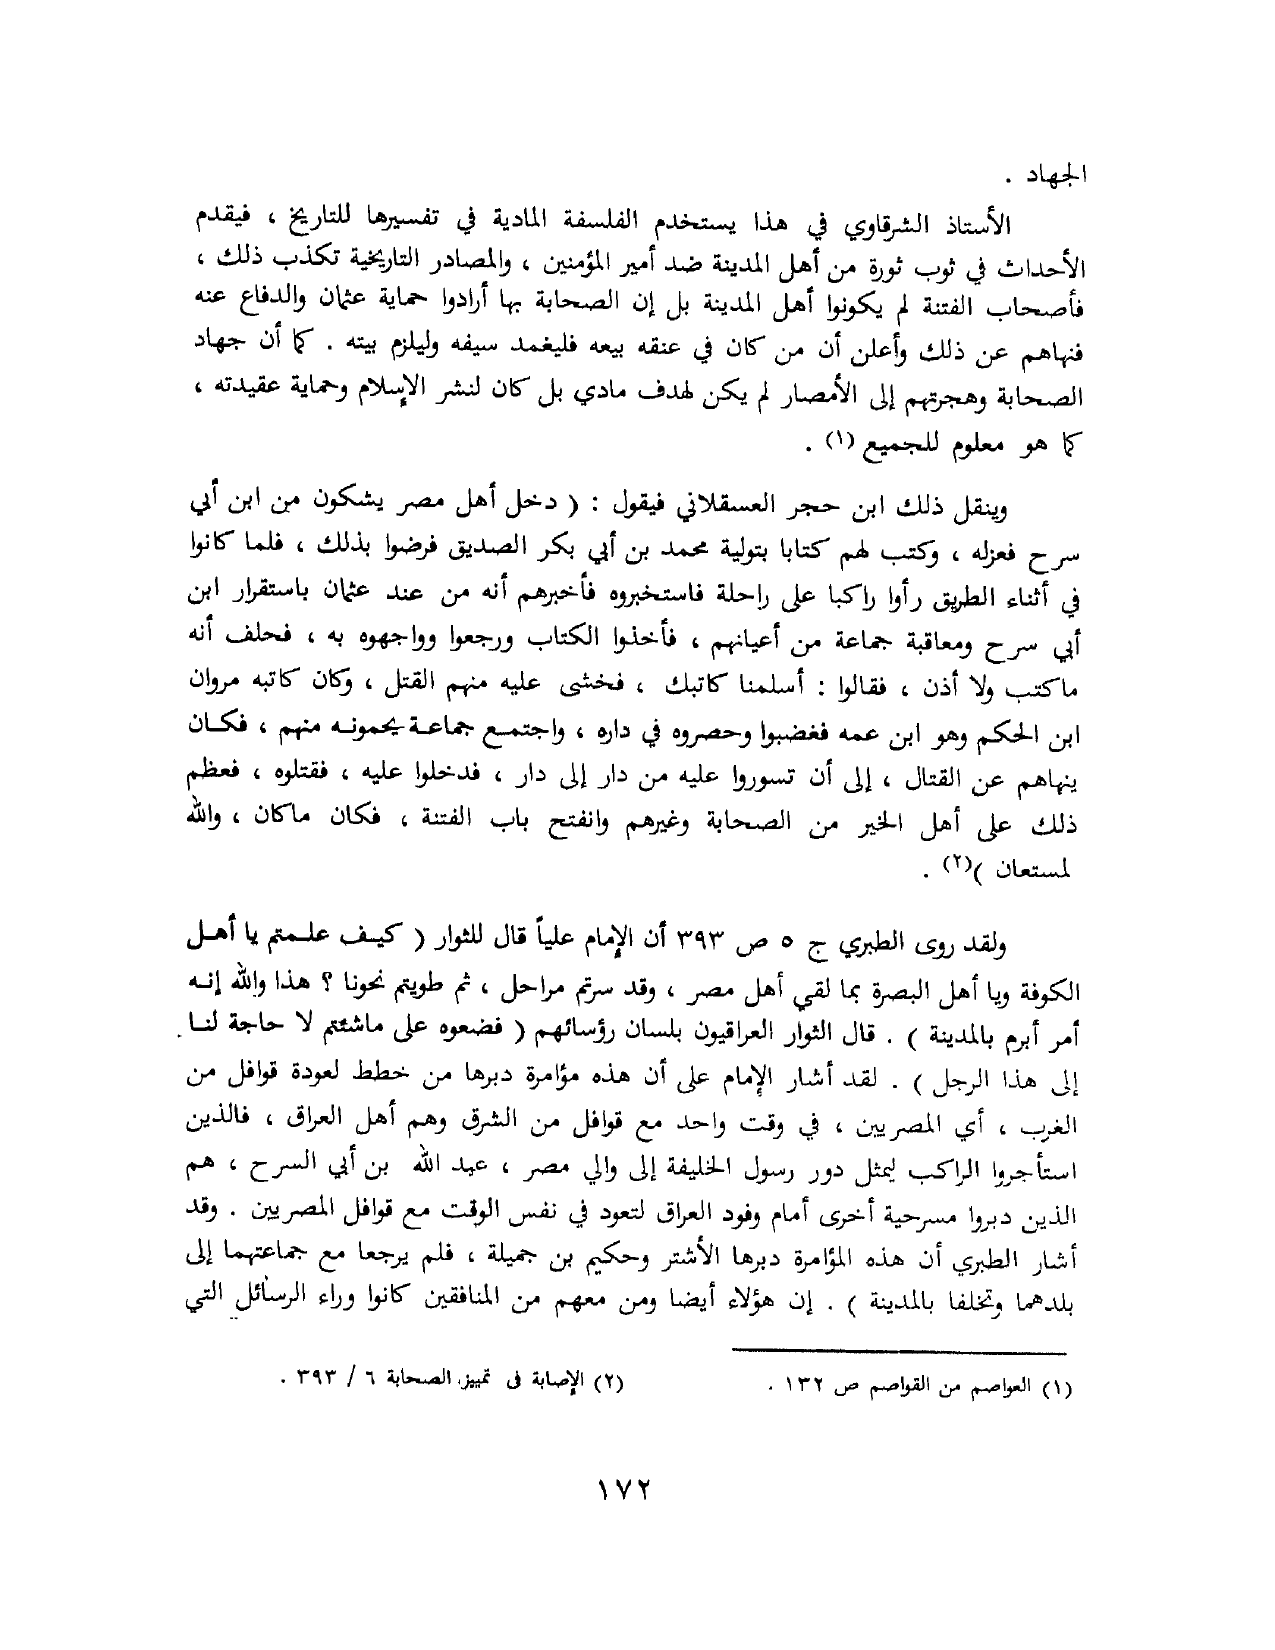 الجهاد .
الأستاذ الشرقاوي في هذا يستخدم الفلسفة المادية في تفسيرها للتاريخ ، فيقدم
الأحداث في ثوب ثورة من أهل المدينة ضد أمير المؤمنين ، والمصادر التاريخية تكذب ذلك ،
فأصحاب الفتنة لم يكونوا أهل المدينة بل إن الصحابة بها أرادوا حماية عثمان والدفاع عنه
فنهاهم عن ذلك وأعلن أن من كان في عنقه بيعه فليغمد سيفه وليلزم بيته . كما أن جهاد
الصحابة وهجرتهم إلى الأمصار لم يكن لهدف مادي بل كان لنشر الإسلام وحماية عقيدته ،
كما هو معلوم للجميع (١) .
وينقل ذلك ابن حجر العسقلاني فيقول : ( دخل أهل مصر يشكون من ابن أبي
سرح فعزله ، وكتب لهم كتابا بتولية محمد بن أبي بكر الصديق فرضوا بذلك ، فلما كانوا
في أثناء الطريق رأوا راكبا على راحلة فاستخبروه فأخبرهم أنه من عند عثمان باستقرار ابن
أبي سرح ومعاقبة جماعة من أعيانهم ، فأخذوا الكتاب ورجعوا وواجهوه به ، فحلف أنه
ماكتب ولا أذن ، فقالوا : أسلمنا كاتبك ، فخشى عليه منهم القتل ، وكان كاتبه مروان
ابن الحكم وهو ابن عمه فغضبوا وحصروه في داره ، واجتمع جماعة يحمونه منهم ، فكان
ينهاهم عن القتال ، إلى أن تسوروا عليه من دار إلى دار ، فدخلوا عليه ، فقتلوه ، فعظم
ذلك على أهل الخير من الصحابة وغيرهم وانفتح باب الفتنة ، فكان ماكان ، والله
لمستعان )(٢) .
ولقد روى الطبري ج ٥ ص ٣٩٣ أن الإمام علياً قال للثوار ( كيف علمتم يا أهل
الكوفة ويا أهل البصرة بما لقي أهل مصر ، وقد سرتم مراحل ، ثم طويتم نحونا ؟ هذا والله إنه
أمر أبرم بالمدينة ) . قال الثوار العراقيون بلسان رؤسائهم ( فضعوه على ماشئتم لا حاجة لنا
إلى هذا الرجل ) . لقد أشار الإمام على أن هذه مؤامرة دبرها من خطط لعودة قوافل من
الغرب ، أي المصريين ، في وقت واحد مع قوافل من الشرق وهم أهل العراق ، فالذين
استأجروا الراكب ليمثل دور رسول الخليفة إلى والي مصر ، عبد الله بن أبي السرح ، هم
الذين دبروا مسرحية أخرى أمام وفود العراق لتعود في نفس الوقت مع قوافل المصريين . وقد
أشار الطبري أن هذه المؤامرة دبرها الأشتر وحكيم بن جميلة ، فلم يرجعا مع جماعتهما إلى
بلدهما وتخلفا بالمدينة ) . إن هؤلاء أيضا ومن معهم من المنافقين كانوا وراء الرسائل التي
(١) العواصم من القواصم ص ١٣٢ .
(٢) الإصابة في تمييز الصحابة ٦ / ٣٩٣ .
١٧٢